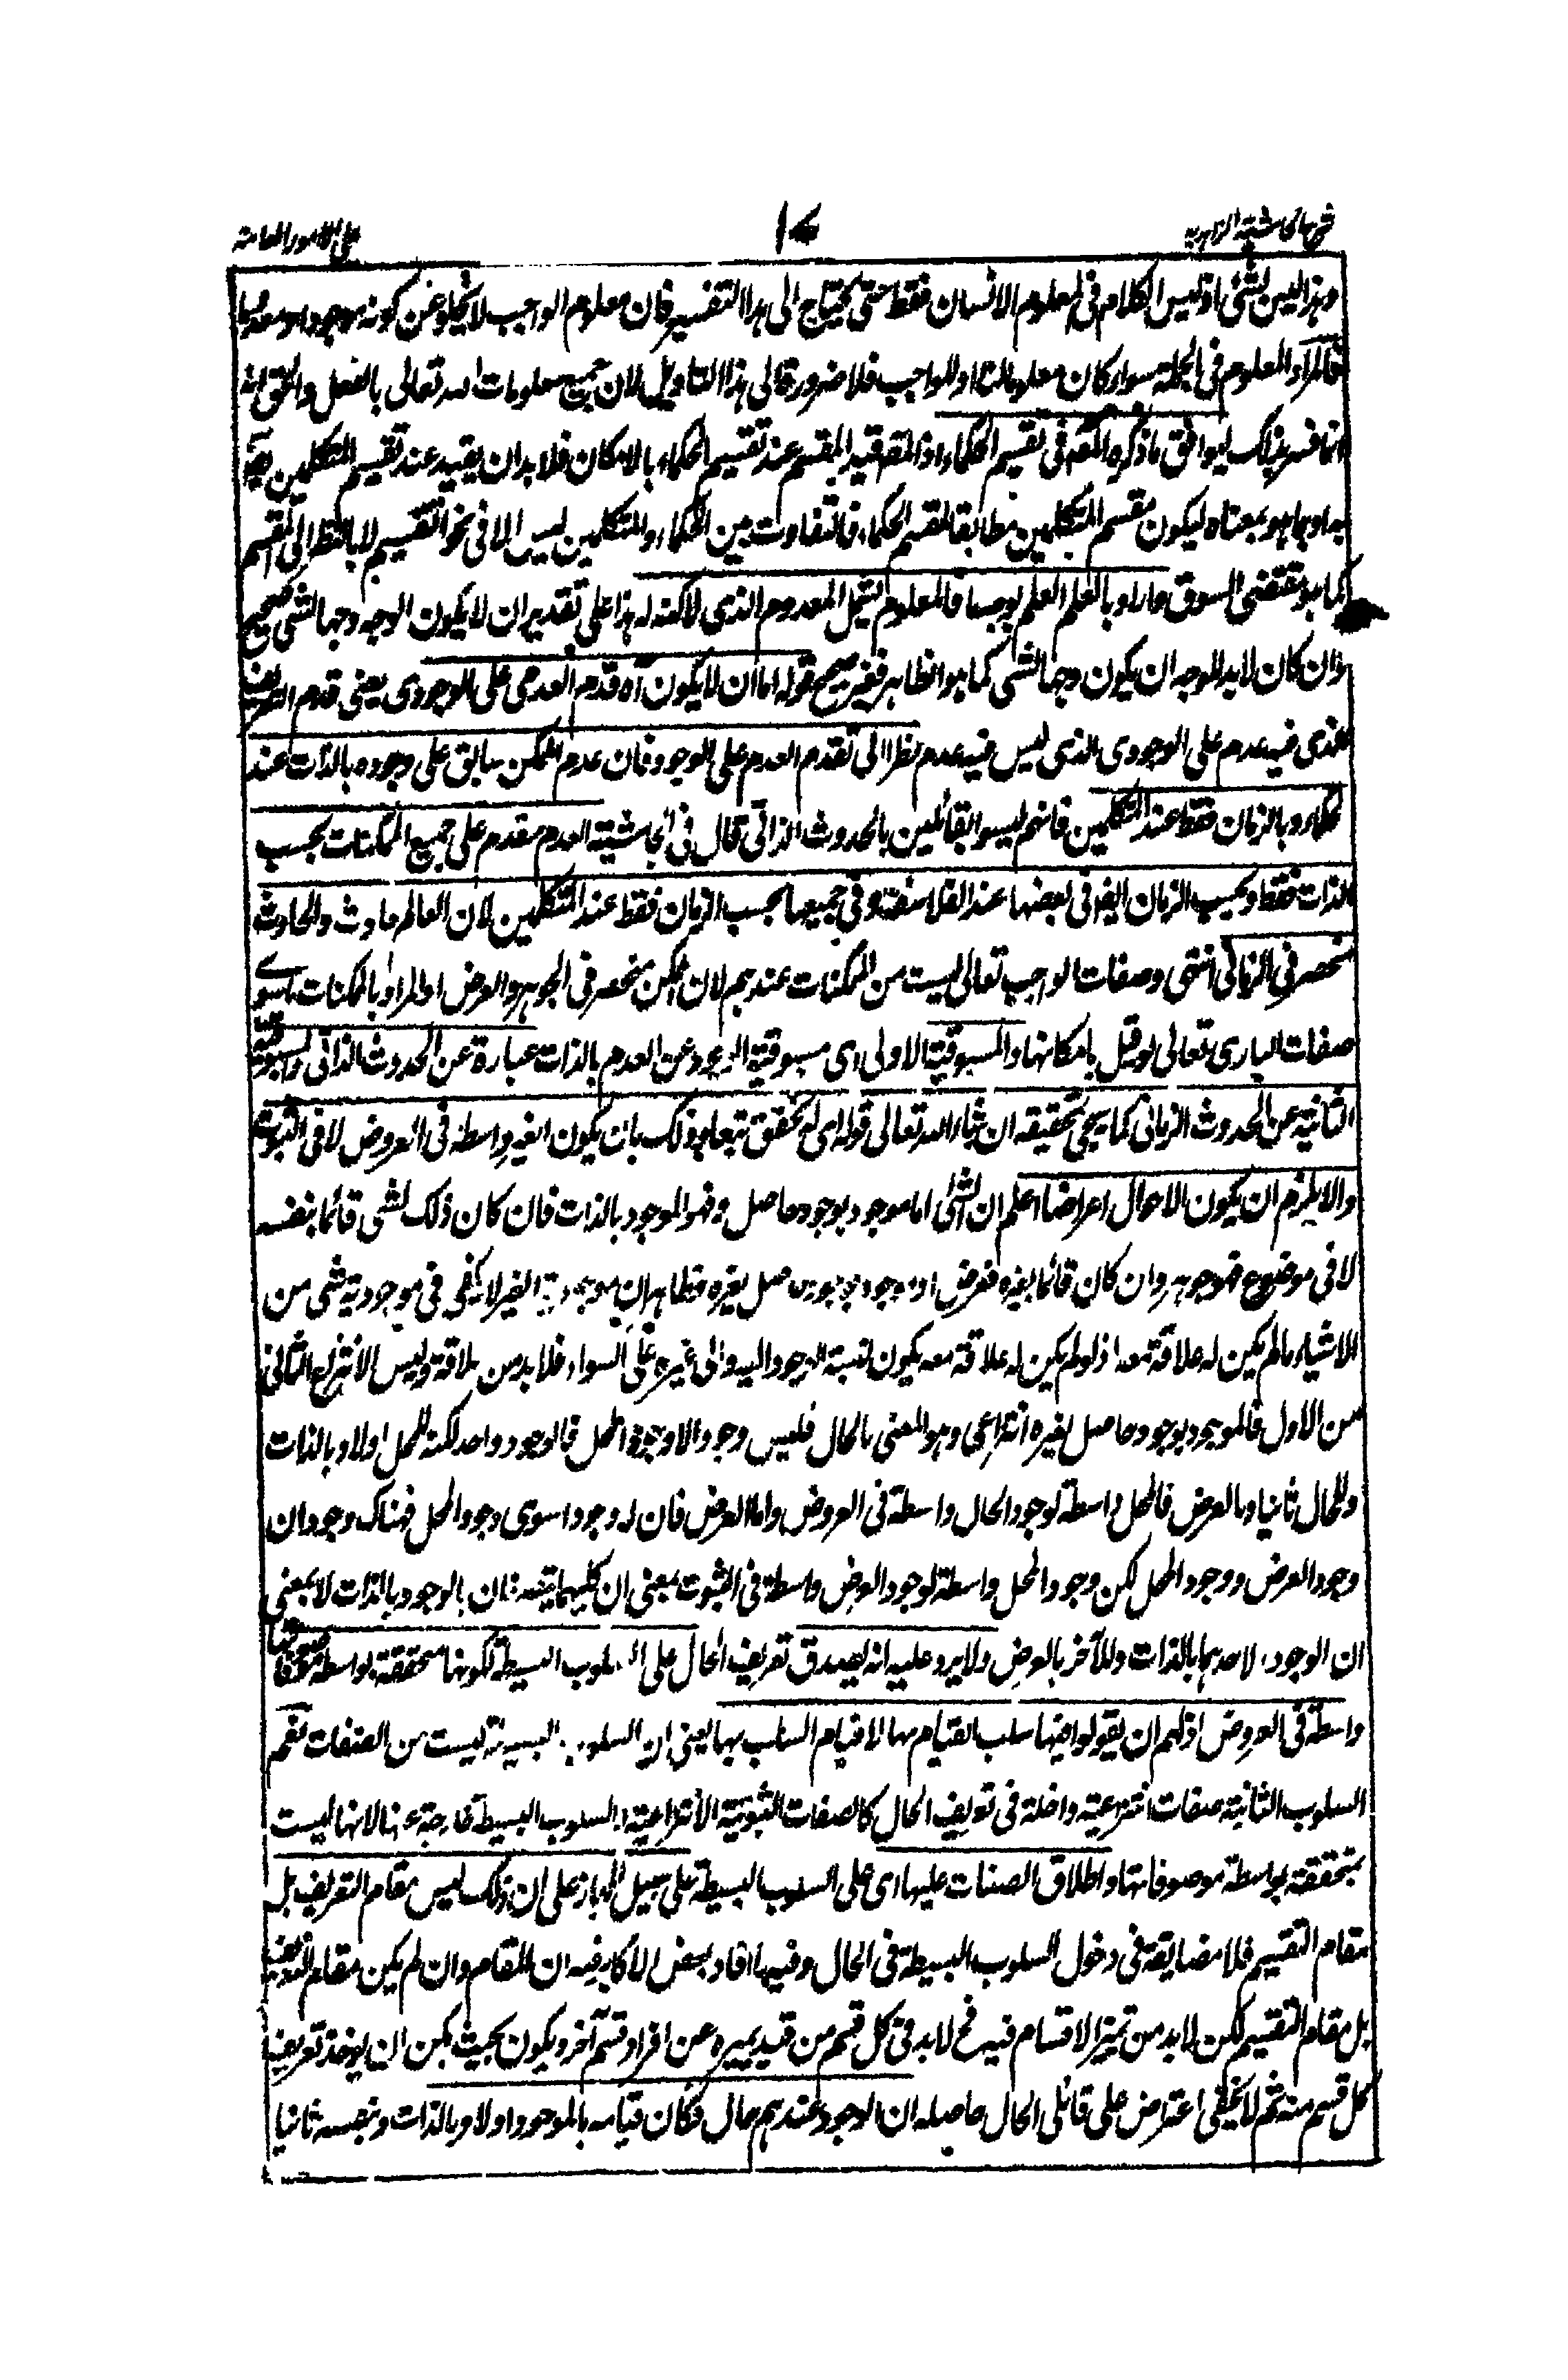 على الامور العامة
وهذا ليس بشئ اذ ليس الكلام فى المعلوم الانسان فقط حتى يحتاج الى هذا التفسير فان معلوم الواجب لا يخلو عن كونه موجودا او معدوما
فالمراد المعلوم فى الجملة سواء كان معلوما لنا او للواجب فلا ضرورة الى هذا التاويل لان جميع معلومات الله تعالى بالفعل والحق انه
انما فسر بذلك ليوافق ما ذكره المصنف فى تقسيم الحكماء اذ المصنف قيد المقسم عند تقسيم الحكماء بالامكان فلا بد ان يقيد عند تقسيم المتكلمين ايضا
به او بما هو بمعناه ليكون مقسم المتكلمين مطابقا لمقسم الحكماء فالتفاوت بين الحكماء والمتكلمين ليس الا فى نحو التقسيم لا بالنظر الى المقسم
كما هو مقتضى السوق واراد بالعلم العلم بوجه ما فالمعلوم يشمل المعدوم الذى لا كنه له هذا على تقدير ان لا يكون الوجه وجها لشئ صحيح
وان كان لا بد للوجه ان يكون وجها لشئ كما هو الظاهر فغير صحيح قوله اما ان لا يكون آه قدم العدمى على الوجودى يعنى قدم التعريف
الذى فيه عدم على الوجودى الذى ليس فيه عدم نظرا الى تقدم العدم على الوجود فان عدم الممكن سابق على وجوده بالذات عند
الحكماء وبالزمان فقط عند المتكلمين فانهم ليسوا بقائلين بالحدوث الذاتى قال فى الحاشية العدم مقدم على جميع الممكنات بحسب
الذات فقط وبحسب الزمان ايضا فى بعضها عند الفلاسفة وفى جميعها بحسب الزمان فقط عند المتكلمين لان العالم حادث والحادث
منحصر فى الزمانى انتهى وصفات الواجب تعالى ليست من الممكنات عندهم لان الممكن منحصر فى الجوهر والعرض او المراد بالممكنات ما سوى
صفات البارى تعالى لو قيل بامكانها والمسبوقية الاولى اى مسبوقية الوجود عن العدم بالذات عبارة عن الحدوث الذاتى والمسبوقية
الثانية عن الحدوث الزمانى كما يجئ تحقيقه ان شاء الله تعالى قوله اى له تحقق تبعا وذلك بان يكون الغير واسطة فى العروض لا فى الثبوت
والا يلزم ان يكون الاحوال اعراضا اعلم ان الشئ اما موجود بوجود حاصل له فهو الموجود بالذات فان كان ذلك الشئ قائما بنفسه
لا فى موضوع فهو جوهر وان كان قائما بغيره فعرض او موجود بوجود حاصل لغيره فظاهر ان موجودية الغير لا يكفى فى موجودية شئ من
الاشياء ما لم يكن له علاقة معه اذ لو لم يكن له علاقة معه يكون نسبة الوجود اليه والى غيره على السواء فلا بد من علاقة وليس الا انتزاع الثانى
من الاول فالموجود بوجود حاصل لغيره انتزاعى وهو المعنى بالحال فليس وجوده الا وجود المحل فالوجود واحد لكنه للمحل اولا وبالذات
وللحال ثانيا وبالعرض فالمحل واسطة لوجود الحال واسطة فى العروض واما العرض فان له وجودا سوى وجود المحل فهناك وجودان
وجود العرض ووجود المحل لكن وجود المحل واسطة لوجود العرض واسطة فى الثبوت بمعنى ان كليهما يتصفان بالوجود بالذات لا بمعنى
ان الوجود لاحدهما بالذات وللآخر بالعرض ولا يرد عليه انه يصدق تعريف الحال على السلوب البسيطة لكونها متحققة بواسطة موصوفاتها
واسطة فى العروض اذ لهم ان يقولوا فيها سلب القيام بها لا قيام السلب بها يعنى ان السلوب البسيطة ليست من الصفات نعم
السلوب الثانية صفات انتزاعية داخلة فى تعريف الحال كالصفات الثبوتية الانتزاعية والسلوب البسيطة خارجة عنها لانها ليست
متحققة بواسطة موصوفاتها واطلاق الصفات عليها اى على السلوب البسيطة على سبيل المجاز على ان ذلك ليس مقام التعريف بل
مقام التقسيم فلا مضايقة فى دخول السلوب البسيطة فى الحال وفيه ما افاد بعض الاكابر فيه ان المقام وان لم يكن مقام التعريف
بل مقام التقسيم لكن لا بد من تميز الاقسام فيه فح لا بد فى كل قسم من قيد يميزه عن افراد قسم آخر ويكون بحيث يمكن ان يوخذ تعريف
كل قسم منه ثم لا يخفى اعتراض على قائلى الحال حاصله ان الوجود عندهم حال فكان قيامه بالموجود اولا وبالذات وبنفسه ثانيا